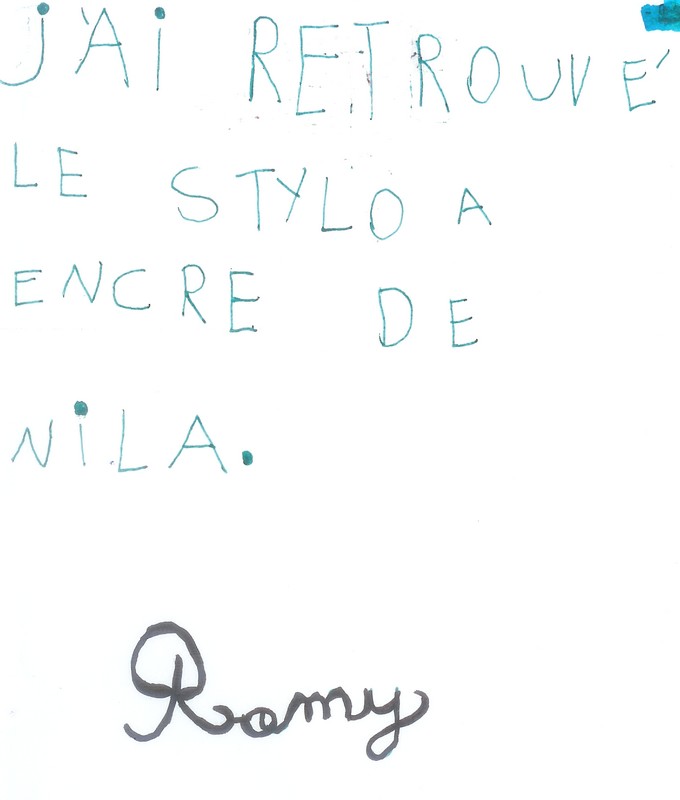 J'Ai RETROUVÉ
LE STYLO A
ENCRE DE
NiLA.
Romy